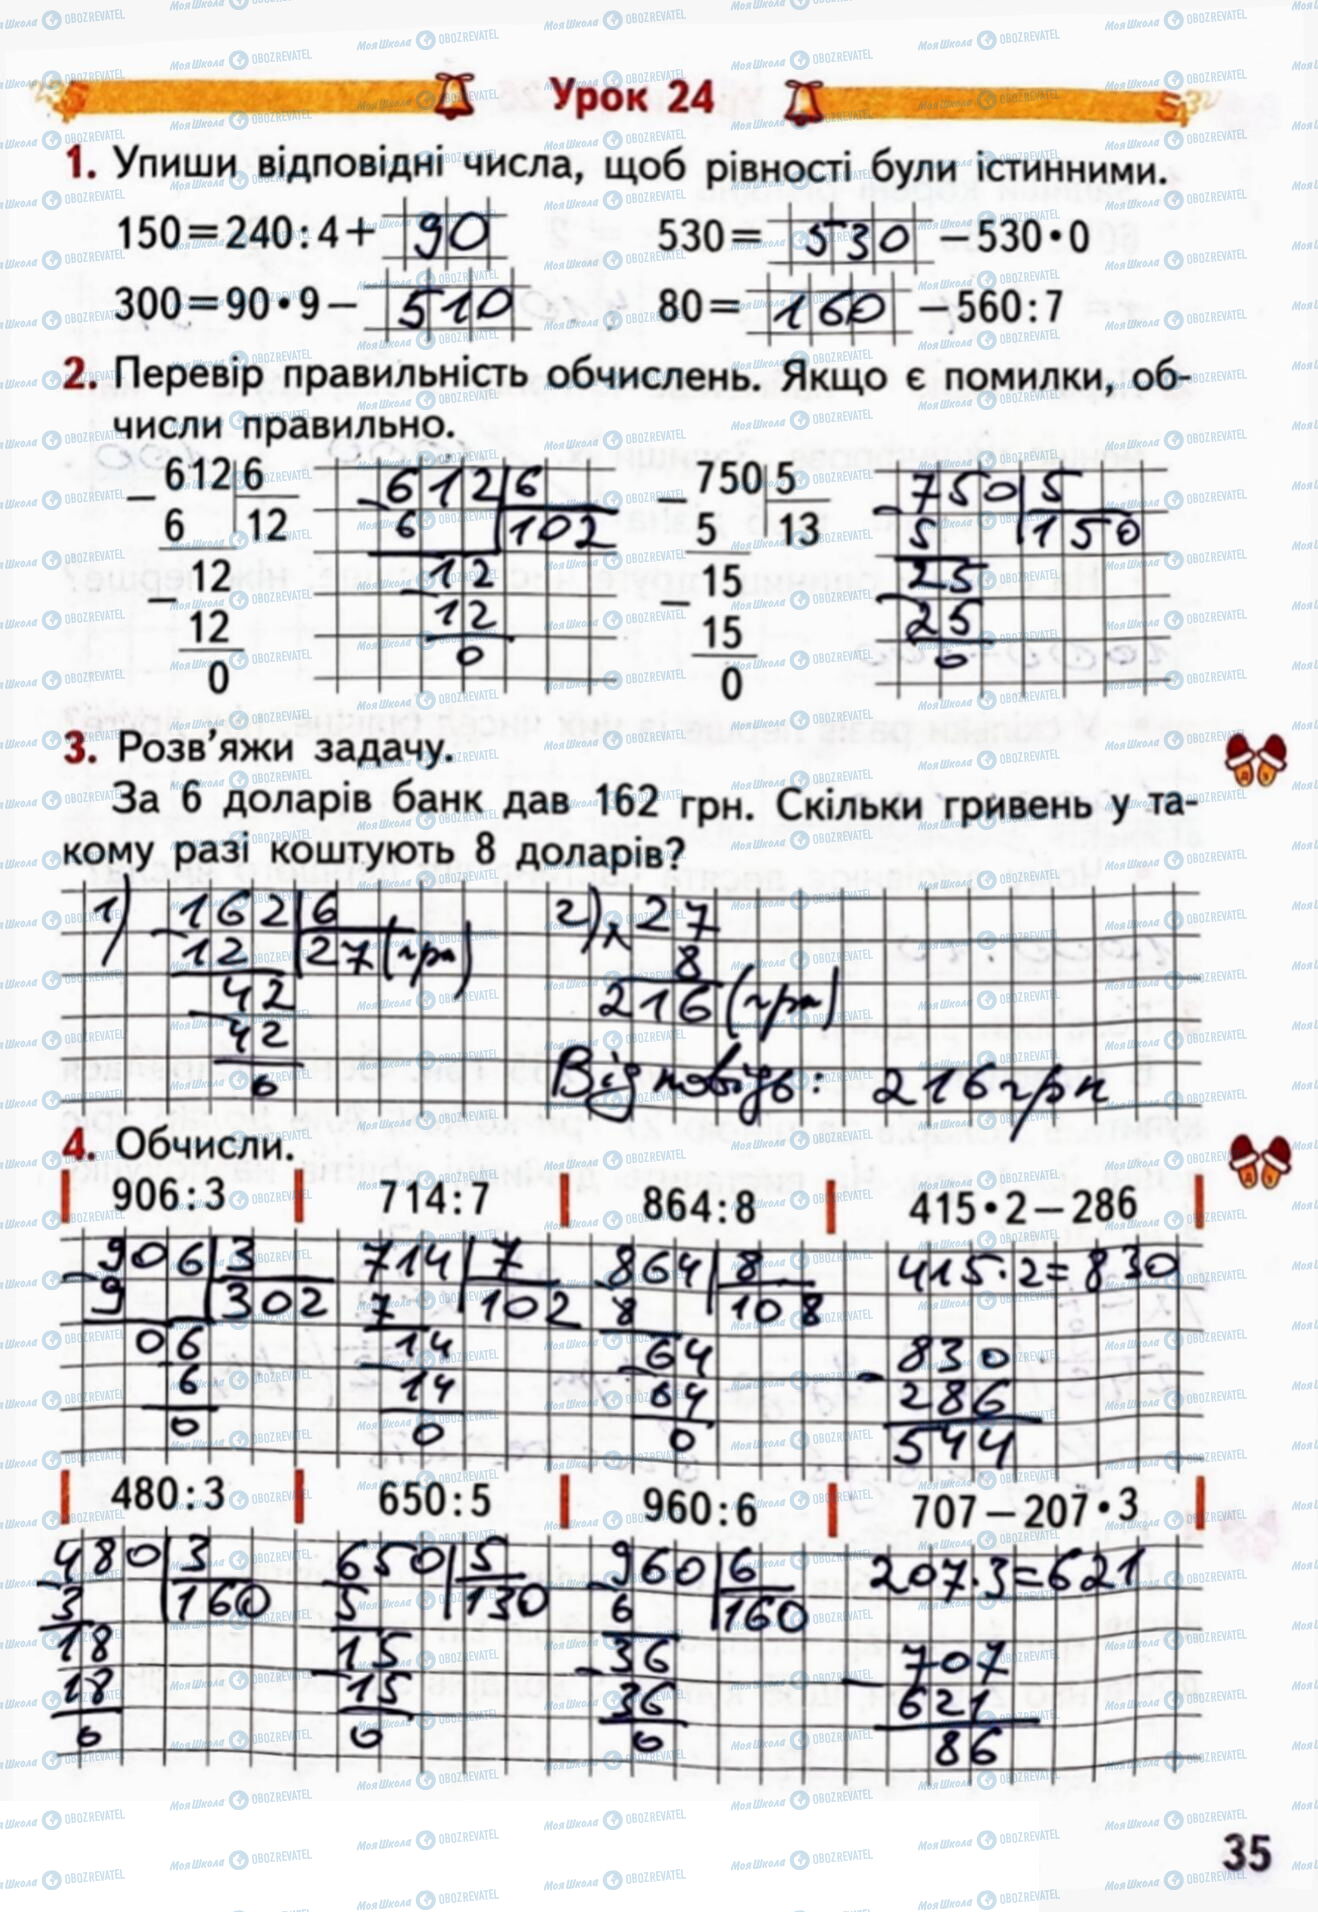 Урок 24
1. Упиши відповідні числа, щоб рівності були істинними.
150=240:4+ 90 530= 530 −530•0
300=90•9− 510 80= 160 −560:7
2. Перевір правильність обчислень. Якщо є помилки, об-
числи правильно.
612 6 612 6 750 5 750 5
6 12 6 102 5 13 5 150
12 12 15 25
12 12 15 25
0 0 0 0
3. Розв’яжи задачу.
За 6 доларів банк дав 162 грн. Скільки гривень у та-
кому разі коштують 8 доларів?
1) 162 6 2) 27
12 27 (грн) 8
42 216 (грн)
42
0 Відповідь: 216 грн
4. Обчисли.
906:3 714:7 864:8 415•2−286
906 3 714 7 864 8 415·2=830
9 302 7 102 8 108
06 14 64 830
6 14 64 286
0 0 0 544
480:3 650:5 960:6 707−207•3
480 3 650 5 960 6 207·3=621
3 160 5 130 6 160
18 15 36 707
18 15 36 621
0 0 0 86
35
МояШкола OBOZREVATEL